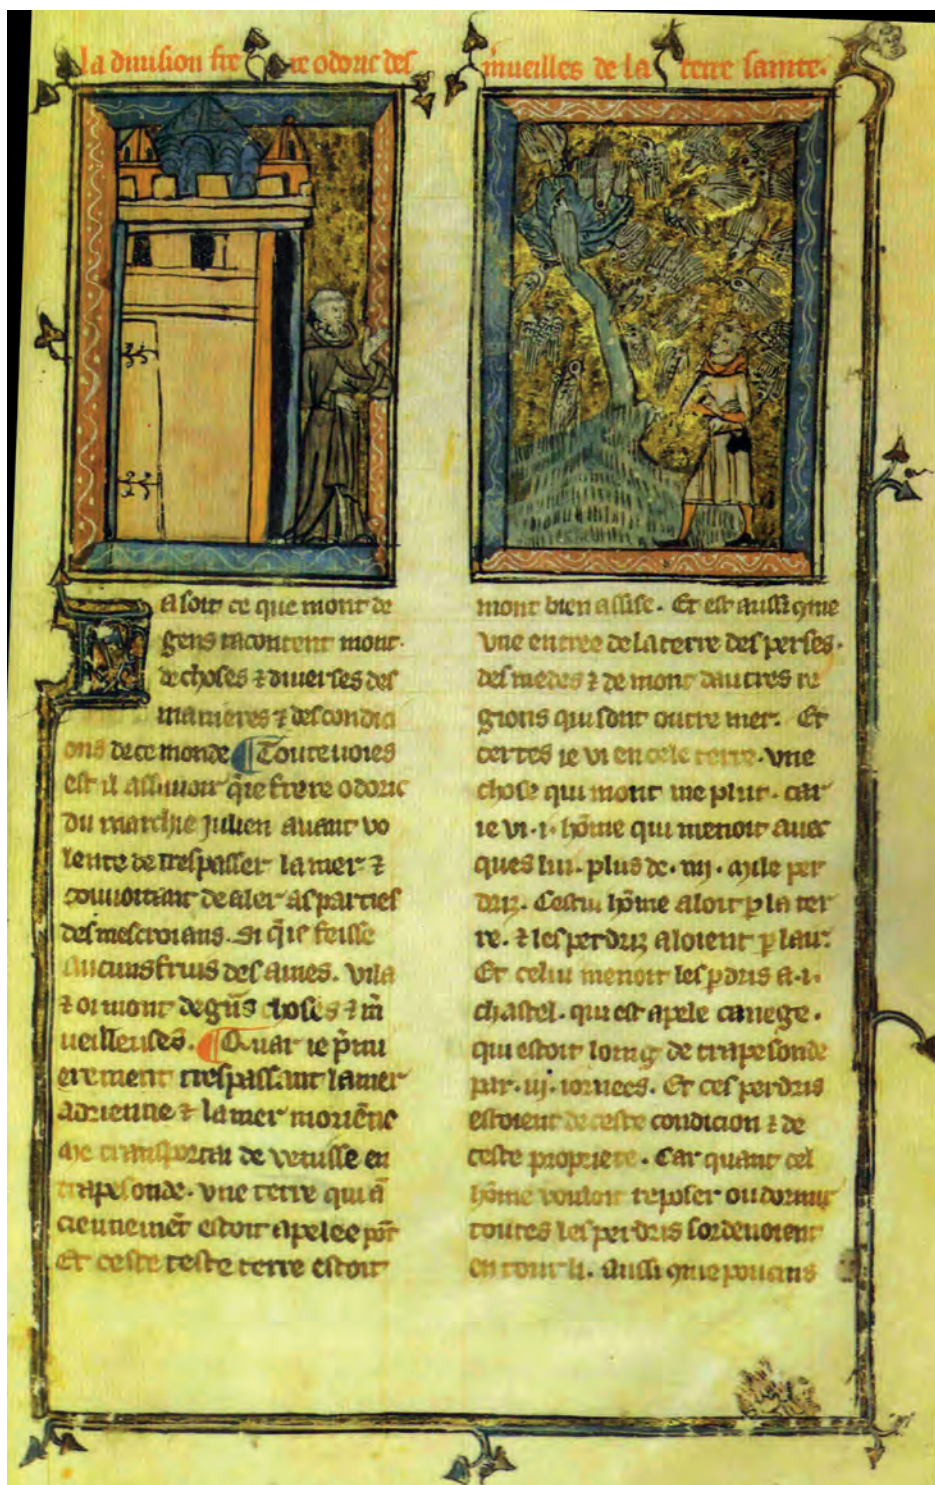 la diuision frere odoric des
mueilles de la terre sainte.
Ia soit ce que mout de
gens racontent mout
de choses ⁊ diuerses des
manieres ⁊ des condici
ons de ce monde ¶ Toute uoies
est il assauoir q̃ ie frere odoric
du marchie julien auant vo
lente de trespasser la mer ⁊
couuoitant de aler as parties
des mescroians. si q̃ ie feisse
aucuns fruis des ames. vi la
⁊ oi mout de gñs choses ⁊ m̃
ueilleuses. ¶ Quar ie p̃mi
erement trespassant la mer
adrienne ⁊ la mer moriẽne
me transportai de venisse en
trapesonde. vne terre qui ã
ciennemẽt estoit apelee põt
Et ceste teste terre estoit
mout bien assise. Et est aussi q̃me
vne entree de la terre des perses.
des medes ⁊ de mout dautres re
gions qui sont outre mer. Et
certes ie vi en cele terre. vne
chose qui mout me plut. car
ie vi .i. hõme qui menoit auec
ques lui. plus de .iiij. mile per
driz. Cestui hõme aloit p̱ la ter
re. ⁊ les perdriz aloient p̱ lair.
Et celui menoit les p̱dris a .i.
chastel. qui est apele canege.
qui estoit loing de trapesonde
par .iij. iornees. Et ces perdris
estoient de ceste condicion ⁊ de
ceste propriete. Car quant cel
hõme vouloit reposer ou dormir
toutes les perdris sordenoient
en tour li. aussi q̃me poucins